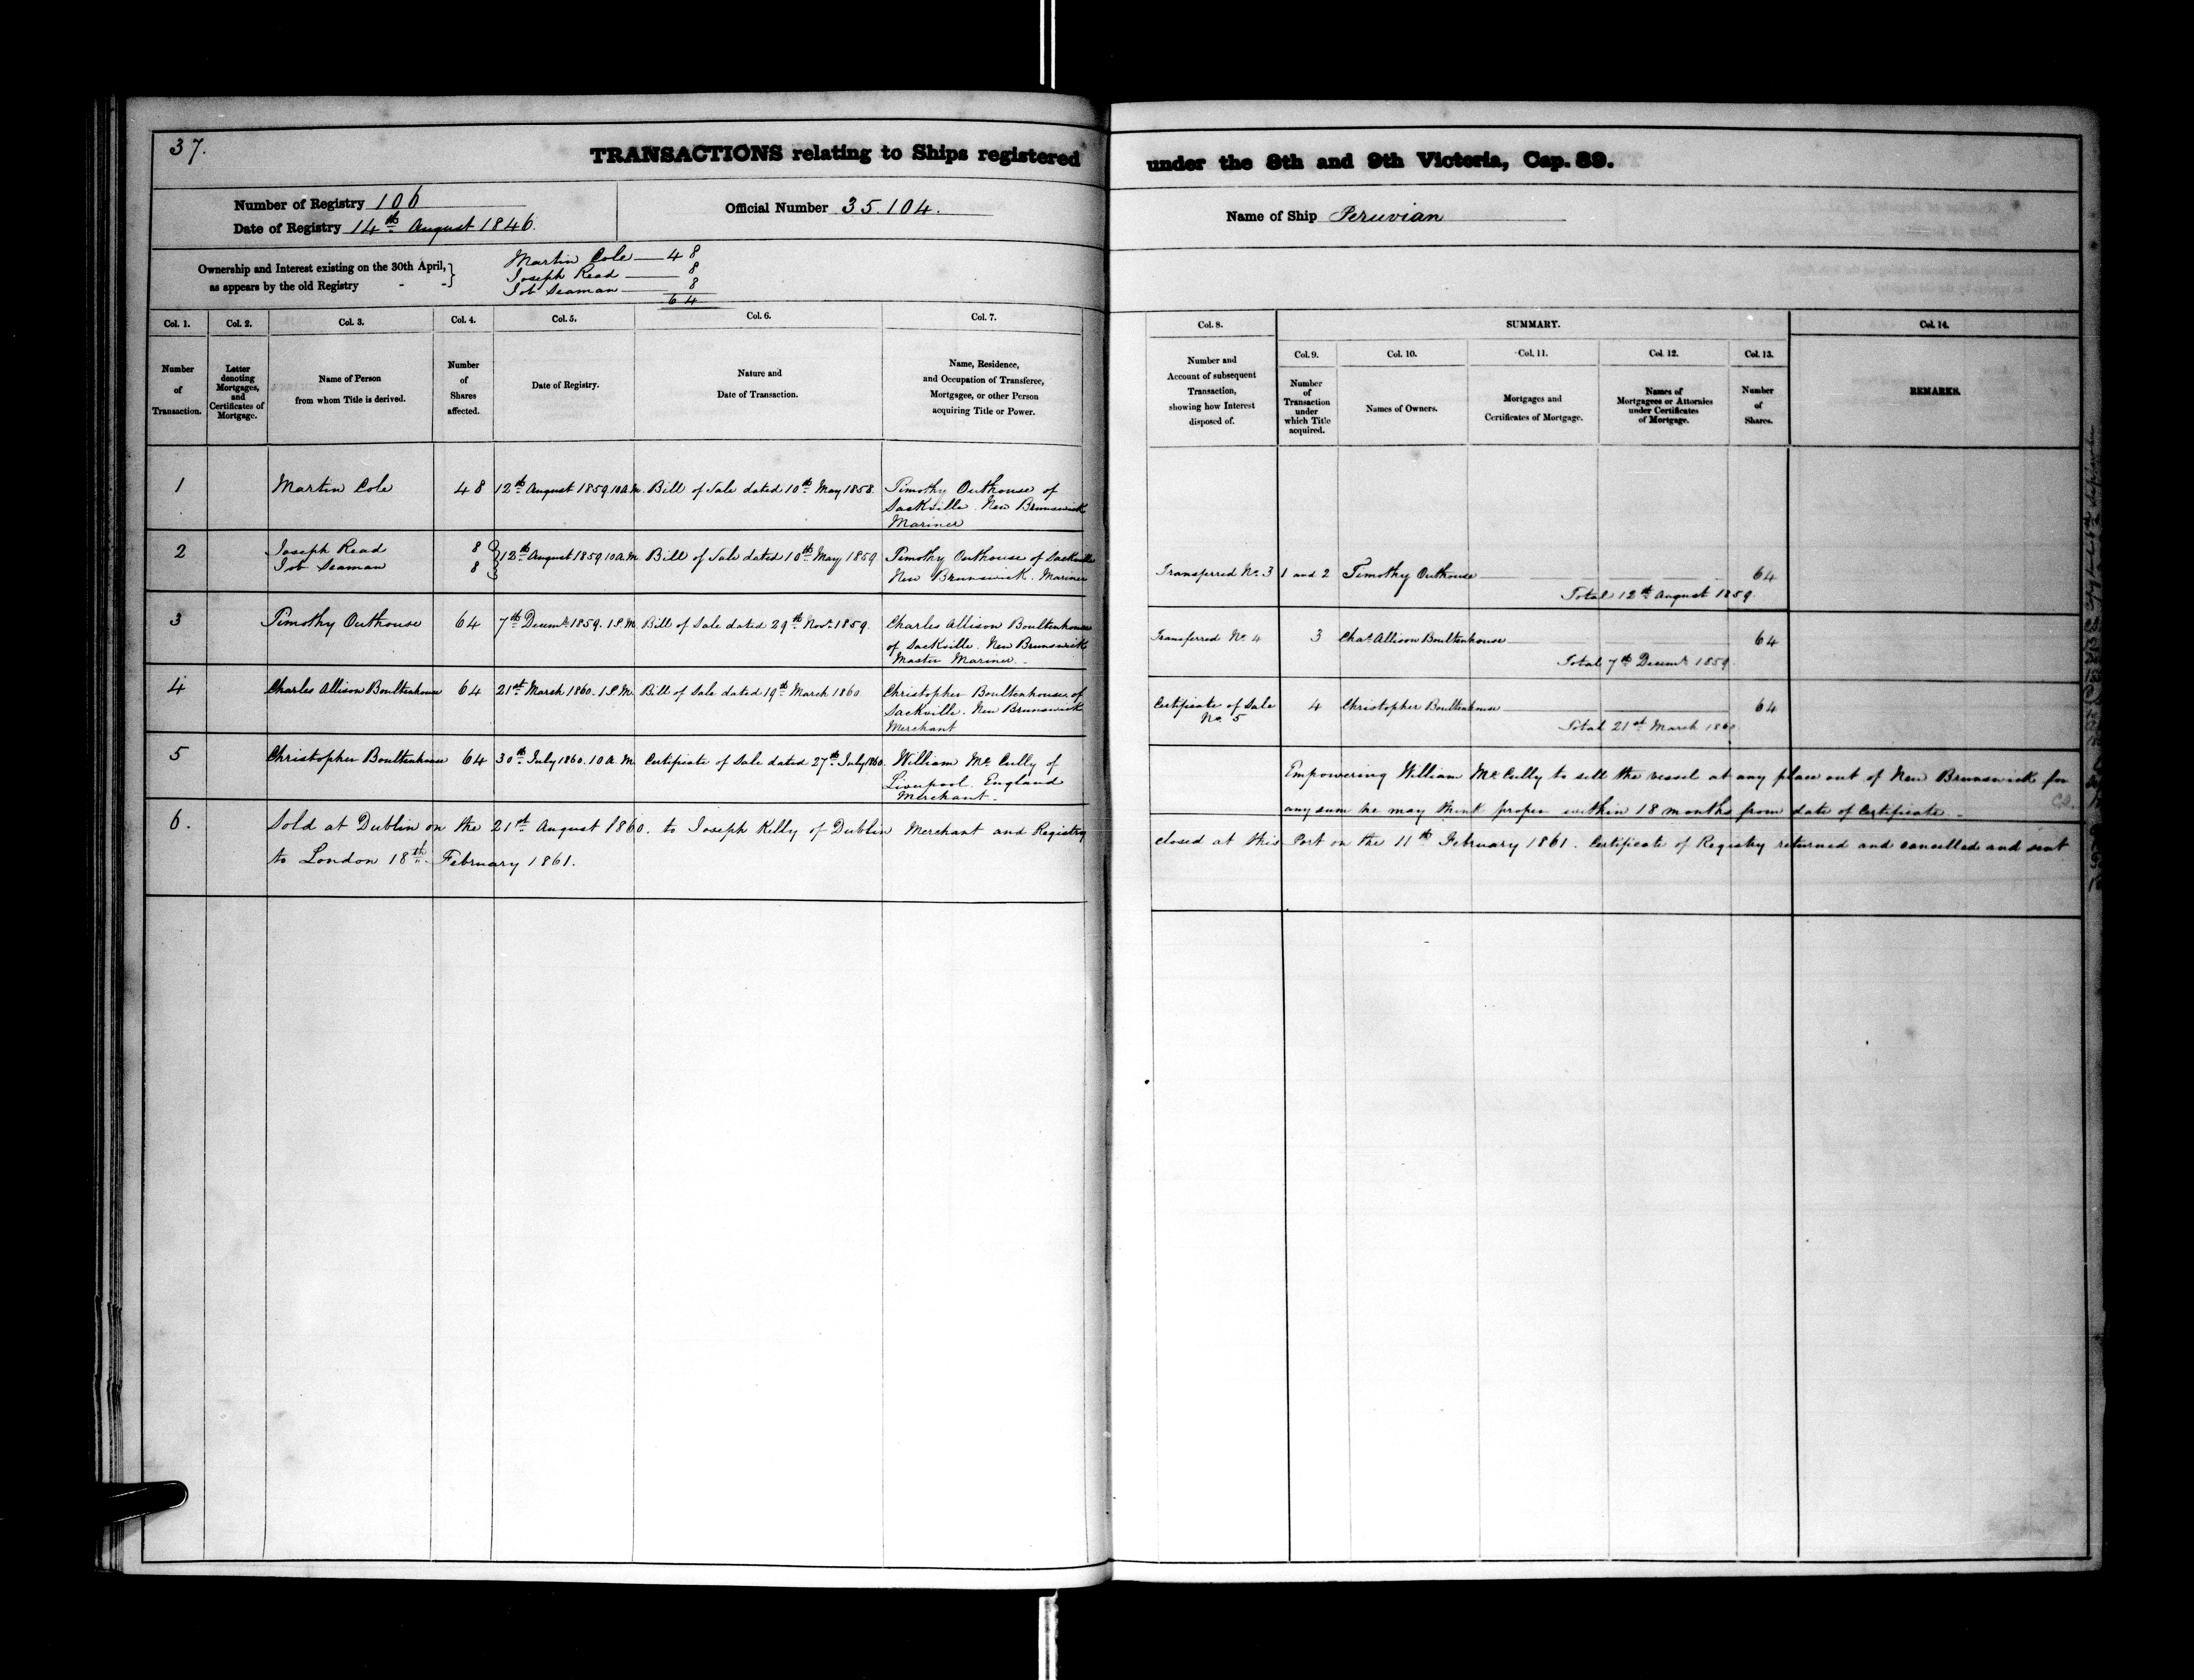 37.
TRANSACTIONS relating to Ships registered under the 8th and 9th Victoria, Cap. 89.
Number of Registry 106
Date of Registry 14th August 1846.
Official Number 35.104.
Name of Ship Peruvian
Ownership and Interest existing on the 30th April, } as appears by the old Registry - -
Martin Cole — 48
Joseph Read — 8
Job Seaman — 8
64
Col. 1. Col. 2. Col. 3. Col. 4. Col. 5. Col. 6. Col. 7. Col. 8. SUMMARY. Col. 14.
Col. 9. Col. 10. Col. 11. Col. 12. Col. 13.
Number of Transaction.
Letter denoting Mortgages, and Certificates of Mortgage.
Name of Person from whom Title is derived.
Number of Shares affected.
Date of Registry.
Nature and Date of Transaction.
Name, Residence, and Occupation of Transferee, Mortgagee, or other Person acquiring Title or Power.
Number and Account of subsequent Transaction, showing how Interest disposed of.
Number of Transaction under which Title acquired.
Names of Owners.
Mortgages and Certificates of Mortgage.
Names of Mortgagees or Attornies under Certificates of Mortgage.
Number of Shares.
REMARKS.
1 Martin Cole 48 12th August 1859 10 A.M. Bill of Sale dated 10th May 1858. Timothy Outhouse of
Sackville. New Brunswick
Mariner
2 Joseph Read 8
Job Seaman 8 } 12th August 1859 10 A.M. Bill of Sale dated 10th May 1859 Timothy Outhouse of Sackville
New Brunswick. Mariner
Transferred No. 3 1 and 2 Timothy Outhouse 64
Total 12th August 1859
3 Timothy Outhouse 64 7th Decemr. 1859. 1 P.M. Bill of Sale dated 29th Novr. 1859. Charles Allison Boultenhouse
of Sackville. New Brunswick
Master Mariner.
Transferred No. 4 3 Chas. Allison Boultenhouse 64
Total 7th Decemr. 1859.
4 Charles Allison Boultenhouse 64 21st March 1860. 1 P.M. Bill of Sale dated 19th March 1860 Christopher Boultenhouse of
Sackville. New Brunswick
Merchant
Certificate of Sale No. 5 4 Christopher Boultenhouse 64
Total 21st March 1860.
5 Christopher Boultenhouse 64 30th July 1860. 10 A.M. Certificate of Sale dated 27th July 1860. William McCully of
Liverpool. England
Merchant.
Empowering William McCully to sell the vessel at any place out of New Brunswick for
any sum he may think proper within 18 months from date of Certificate.
6. Sold at Dublin on the 21st August 1860. to Joseph Kelly of Dublin Merchant and Registry closed at this Port on the 11th February 1861. Certificate of Registry returned and cancelled and sent
to London 18th February 1861.